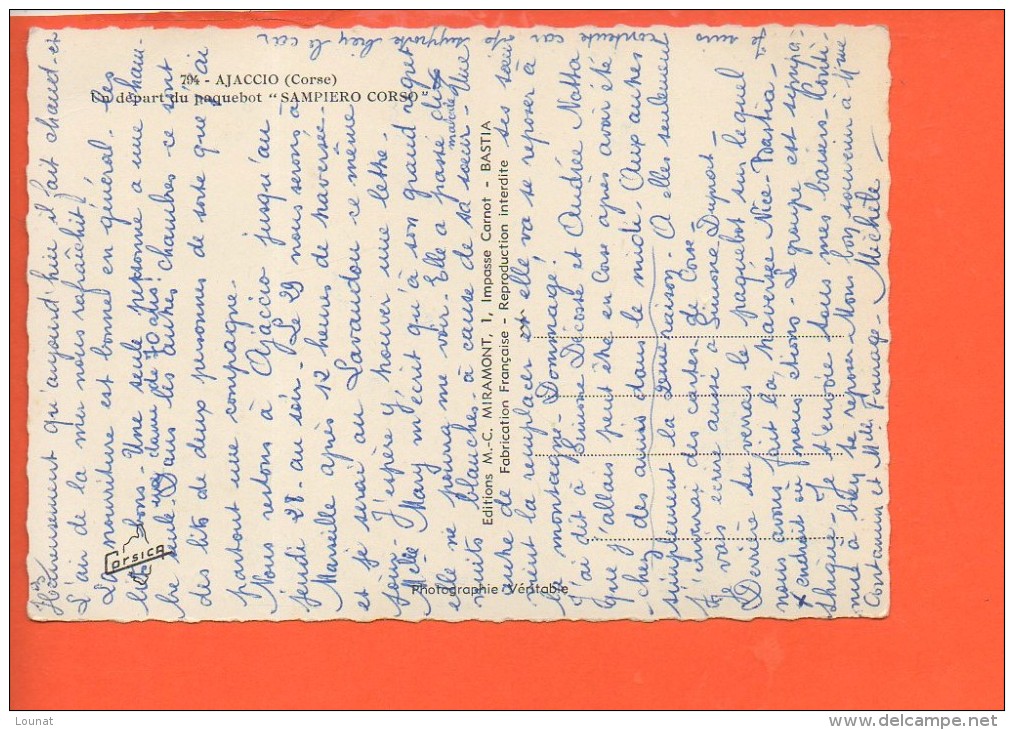 794 - AJACCIO (Corse)
Un départ du paquebot "SAMPIERO CORSO"
Corsica
Editions M.-C. MIRAMONT, 1, Impasse Carnot - BASTIA
Fabrication Française - Reproduction interdite
Photographie Véritable
Heureusement qu'aujourd'hui il fait chaud et
L'air de la mer nous rafraîchit!
La nourriture est bonne en général. Les
lits bons. Une seule personne a une cham-
bre seule une dame de 70 ans! Dans les autres chambres ce sont
des lits de deux personnes de sorte que j'ai
partout une compagne.
Nous restons à Ajaccio jusqu'au
jeudi 28 au soir. Le 29 nous serons à
Marseille après 12 heures de traversée.
et je serai au Lavandou ce même
jour. J'espère y trouver une lettre.
Melle Mary m'écrit qu'à son grand regret
elle ne pourra me voir. Elle a passé dix
nuits blanches à cause de sa soeur. Une
autre de ses soeurs mariée
vient la remplacer et elle va se reposer à
la montagne. Dommage!
J'ai dit à Simone Décosse et Andrée Natta
que j'allais peut être en Corse après avoir été
chez des amis dans le midi. Aux autres
simplement la 2ème raison. A elles seulement
j'enverrai des cartes de Corse
Je vais écrire aussi à Simone Dupont
Derrière tu verras le paquebot sur lequel
nous avons fait la traversée Nice-Bastia
x endroit où nous étions. Le groupe est sympa-
thique. Je t'envoie tous mes baisers.
à bien te reposer. Mon bon souvenir à Mme
Contamin et Melle
Michèle
Je suis contente car je supporte bien le car
Lounat
www.delcampe.net